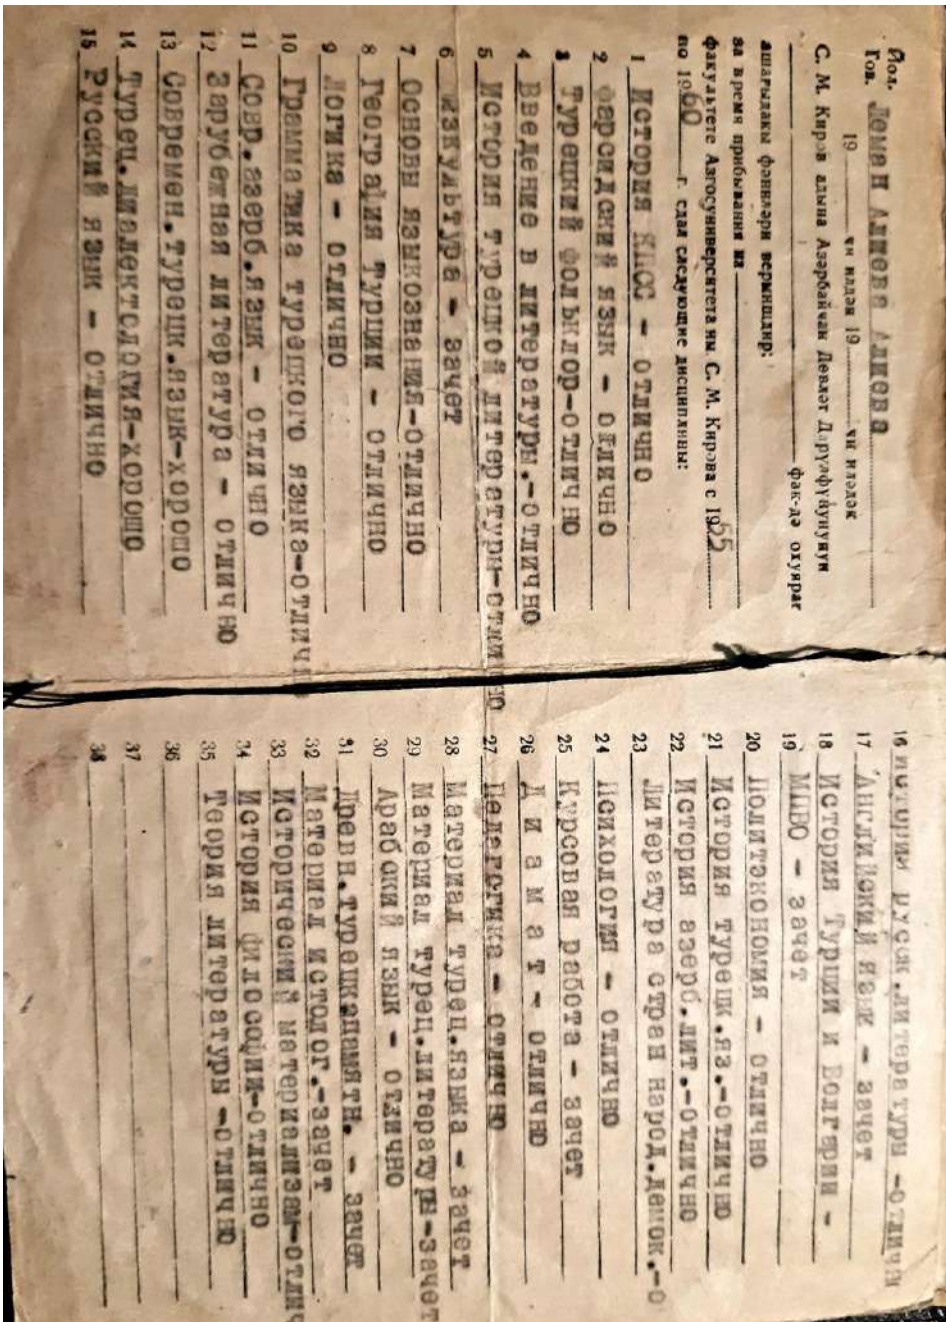 Йол.
Тов. Леман Алиева Алиева
19 чи илдән 19 чи иләдәк
С. М. Киров адына Азәрбайҹан Девләт Дарулфүнунунун
фак-дә охуяраг
ашағыдакы фәнләри вермишдир:
за время прибывания на
факультете Азгосуниверситета им С. М. Кирова с 1955
по 1960 г. сдал следующие дисциплины:
1 История КПСС - отлично
2 Фарсидский язык - отлично
3 Турецкий фольклор-отлично
4 Введение в литературы.-отлично
5 История турецкой литературы-отлично
6 Физкультура - зачет
7 Основы языкознания-отлично
8 География Турции - отлично
9 Логика - отлично
10 Грамматика турецкого языка-отличн
11 Совр.азерб.язык - отлично
12 Зарубежная литература - отлично
13 Современ.турецк.язык-хорошо
14 Турец.диалектология-хорошо
15 Русский язык - отлично
16 истории русск.литературы -отличн
17 Английский язык - зачет
18 История Турции и Болгарии -
19 МПВО - зачет
20 Политэкономия - отлично
21 История турецк.яз.-отлично
22 История азерб.лит.-отлично
23 Литература стран народ.демок.-о
24 Психология - отлично
25 Курсовая работа - зачет
26 Д и а м а т - отлично
27 Педагогика - отлично
28 Материал турец.языка - зачет
29 Материал турец.литературы-зачет
30 Арабский язык - отлично
31 Древн.турецк.памятн. - зачет
32 Материал истолог.-зачет
33 Исторический материализм-отличн
34 История философии-отлично
35 Теория литературы-отлично
36
37
38